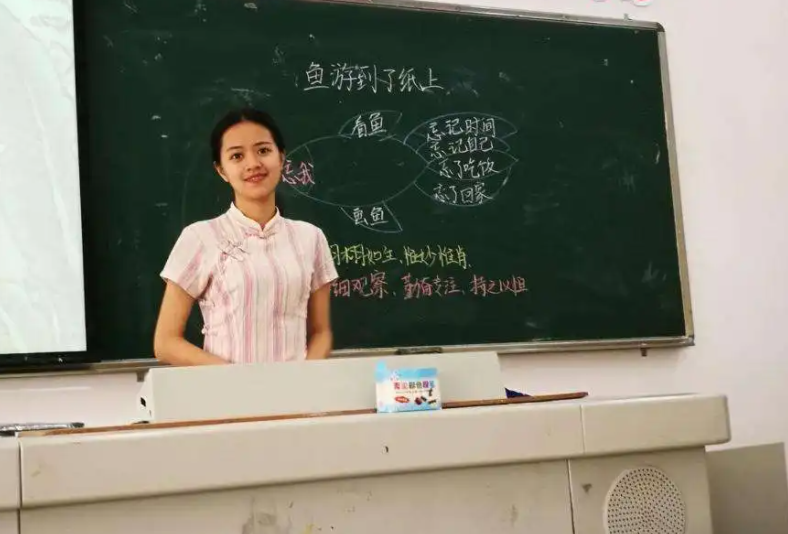 鱼游到了纸上
看鱼
忘记时间
忘记自己
忘我
忘了吃饭
忘了回家
画鱼
栩栩如生、惟妙惟肖
细观察、勤奋专注、持之以恒